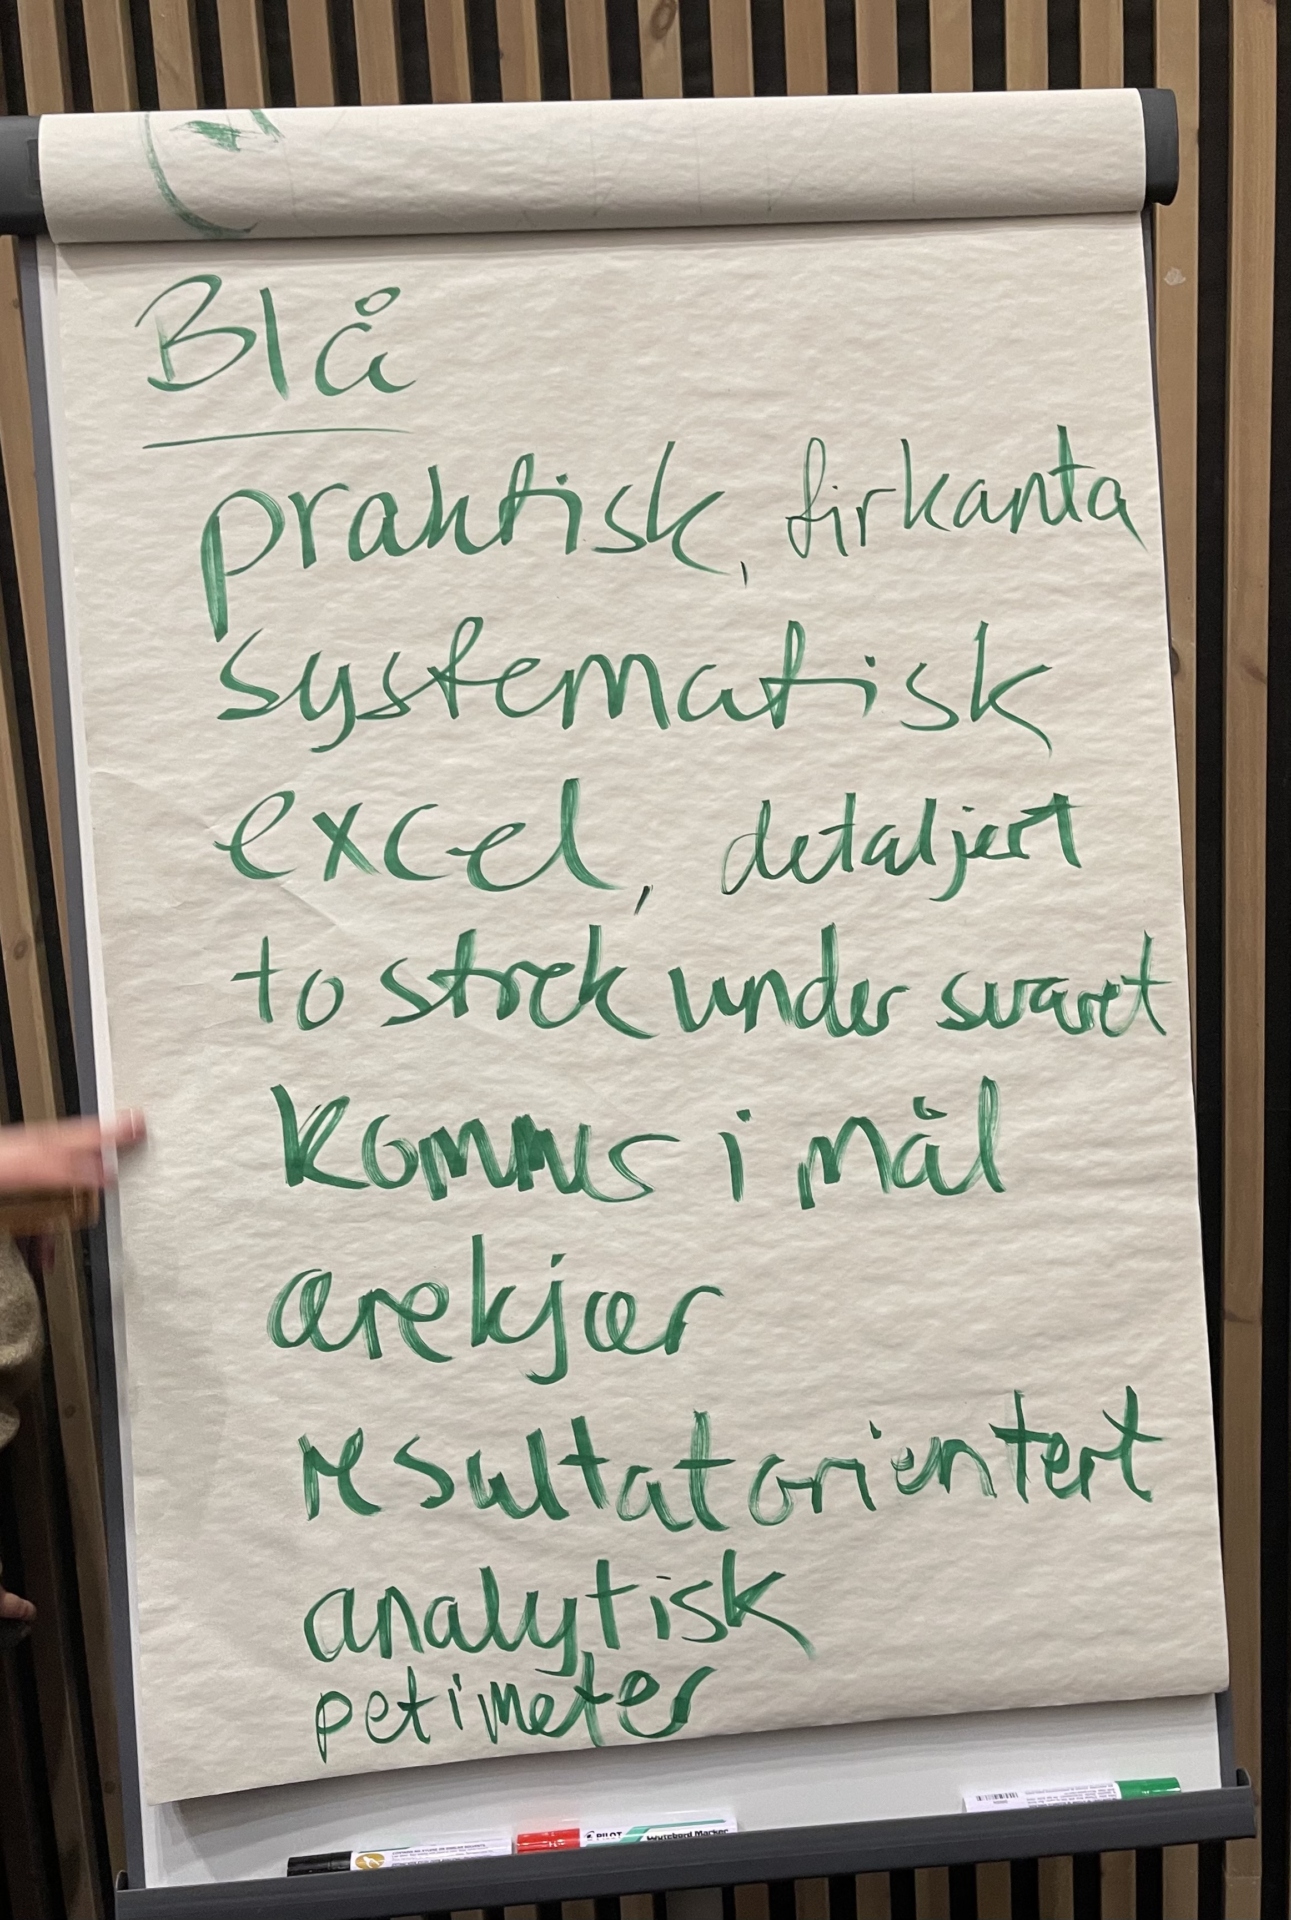 Blå
praktisk, firkanta
systematisk
excel, detaljert
to strek under svaret
Kommer i mål
ærekjær
resultatorientert
analytisk
petimeter
PILOT Wytebord Marker